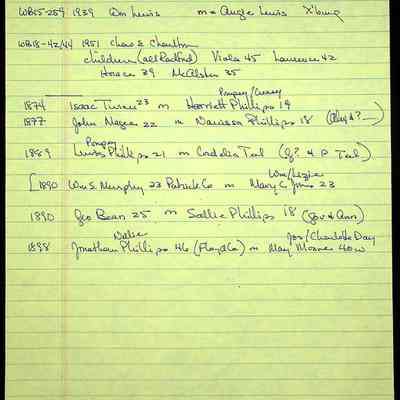 WB15-259 1939 Wm Lewis m = Angie Lewis X'burg
WB18-42/44 1951 Chas S Charlton
children (all Radford) Viola 45 Laurence 42
Horace 39 McAlster 35
Pompey/
1874 Isaac Turner 23 m Harriett Phillips 19
1877 John Magee 22 m Narcissa Phillips 18
Pompey
1889 Lewis Phillips 21 m Cordelia Teel (G? & P Teel)
Wm/Lizzie
1890 Wm S. Murphy 23 Patrick Co m Mary C Jones 23
1890 Geo Bean 25 m Sallie Phillips 18 (Gov & Ann)
Jos/Charlotte Day
1898 Jonathan Phillips 46 (Floyd Co) m May 40w